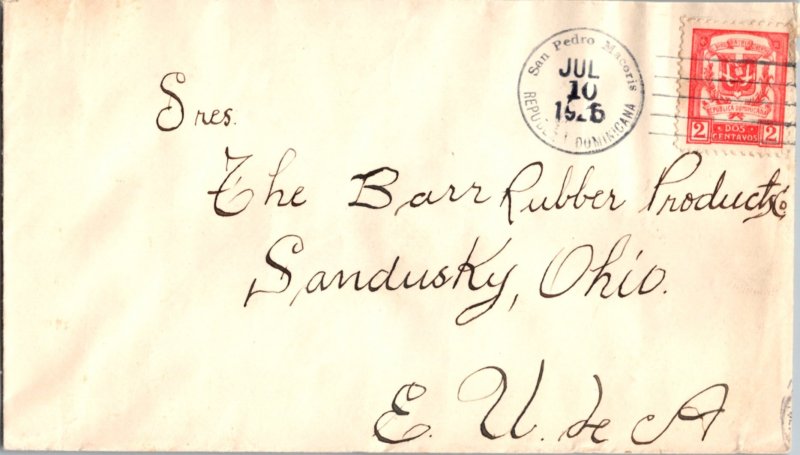 San Pedro Macoris
JUL
10
1926
REPUBLICA DOMINICANA
REPUBLICA DOMINICANA
2 DOS CENTAVOS 2
Sres.
The Barr Rubber Products Co
Sandusky, Ohio.
E. U. de A